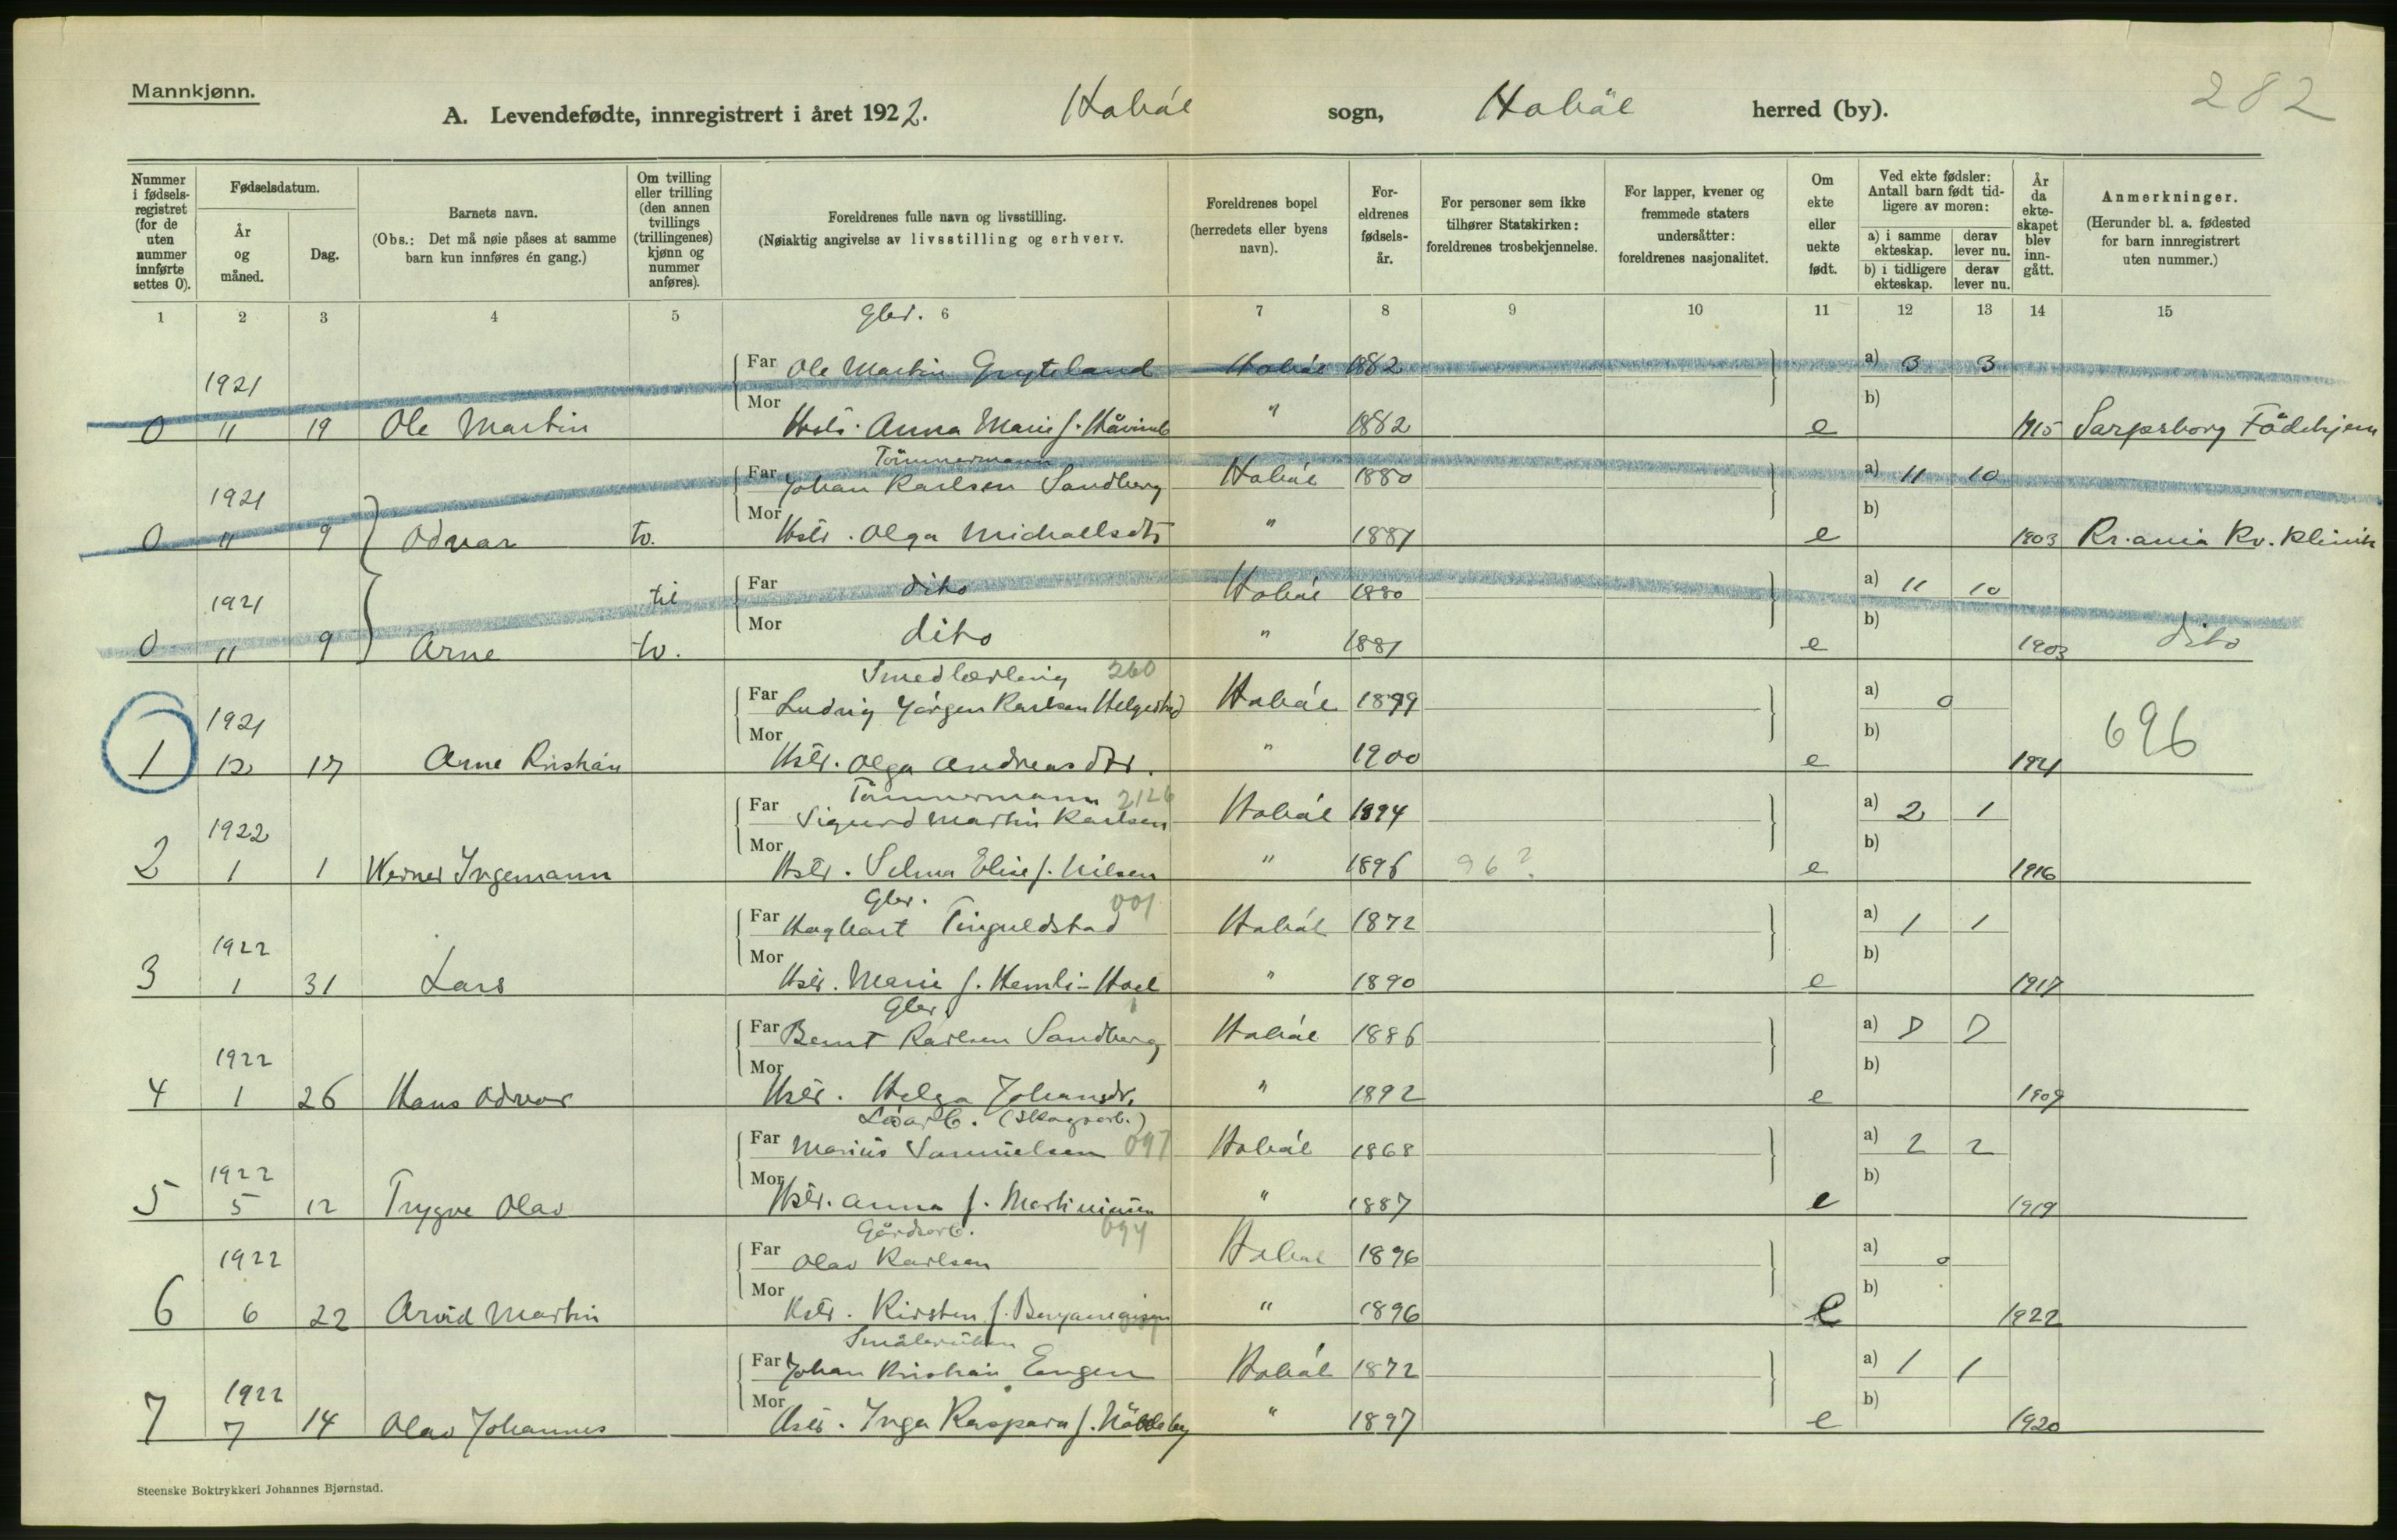 Mannkjønn.
282
A. Levendefødte, innregistrert i året 1922. Hobøl sogn, Hobøl herred (by).
Nummer i fødselsregistret (for de uten nummer innførte settes 0).
Fødselsdatum.
År og måned.
Dag.
Barnets navn.
(Obs.: Det må nøie påses at samme barn kun innføres én gang.)
Om tvilling eller trilling (den annen tvillings (trillingenes) kjønn og nummer anføres).
Foreldrenes fulle navn og livsstilling.
(Nøiaktig angivelse av livsstilling og erhverv.
Foreldrenes bopel (herredets eller byens navn).
Foreldrenes fødselsår.
For personer som ikke tilhører Statskirken: foreldrenes trosbekjennelse.
For lapper, kvener og fremmede staters undersåtter: foreldrenes nasjonalitet.
Om ekte eller uekte født.
Ved ekte fødsler: Antall barn født tidligere av moren:
a) i samme ekteskap. derav lever nu.
b) i tidligere ekteskap. derav lever nu.
År da ekteskapet blev inngått.
Anmerkninger.
(Herunder bl. a. fødested for barn innregistrert uten nummer.)
1 2 3 4 5 6 7 8 9 10 11 12 13 14 15
Gbr.
1921 Far Ole Martin Gryteland Hobøl 1882 a) 3 3
0 11 19 Ole Martin Mor Hstr. Anna Marie f. " 1882 e b) 1915 Sarpsborg Fødehjem
Tömmermann
1921 Far Johan Karlsen Sandberg Hobøl 1880 a) 11 10
0 11 9 Odvar tv. Mor Hstr. Olga Michaelsdtr " 1881 e b) 1903 Kr.ania Kv. klinik
1921 til Far dito Hobøl 1880 a) 11 10
0 11 9 Arne tv. Mor dito " 1881 e b) 1903 dito
Smedlærling 260
1921 Far Ludvig Jörgen Karlsen Helgestad Hobøl 1899 a) 0
1 12 17 Arne Kristian Mor Hstr. Olga Andreasdtr. " 1900 e b) 1921 696
Tömmermann 2126
1922 Far Sigurd Martin Karlsen Hobøl 1894 a) 2 1
2 1 1 Werner Ingemann Mor Hstr. Selma Elise f. Nilsen " 1896 96? e b) 1916
Gbr. 001
1922 Far Hagbart Tinguldstad Hobøl 1872 a) 1 1
3 1 31 Lars Mor Hstr. Marie f. Hemli-Hoel " 1890 e b) 1917
Gbr.
1922 Far Bernt Karlsen Sandberg Hobøl 1886 a)
4 1 26 Hans Odvar Mor Hstr. Helga Johansdr. " 1892 e b) 1909
Lösarb. (skogsarb.)
1922 Far Marius Samuelsen 097 Hobøl 1868 a) 2 2
5 5 12 Trygve Olav Mor Hstr. Anna f. Martiniusen " 1887 e b) 1919
Gårdsarb. 094
1922 Far Olav Karlsen Hobøl 1896 a) 0
6 6 22 Arvid Martin Mor Hstr. Kirsten f. " 1896 e b) 1922
Småbruker
1922 Far Johan Kristian Engen Hobøl 1872 a) 1 1
7 7 14 Olav Johannes Mor Hstr. Inga Kaspara f. " 1897 e b) 1920
Steenske Boktrykkeri Johannes Bjørnstad.